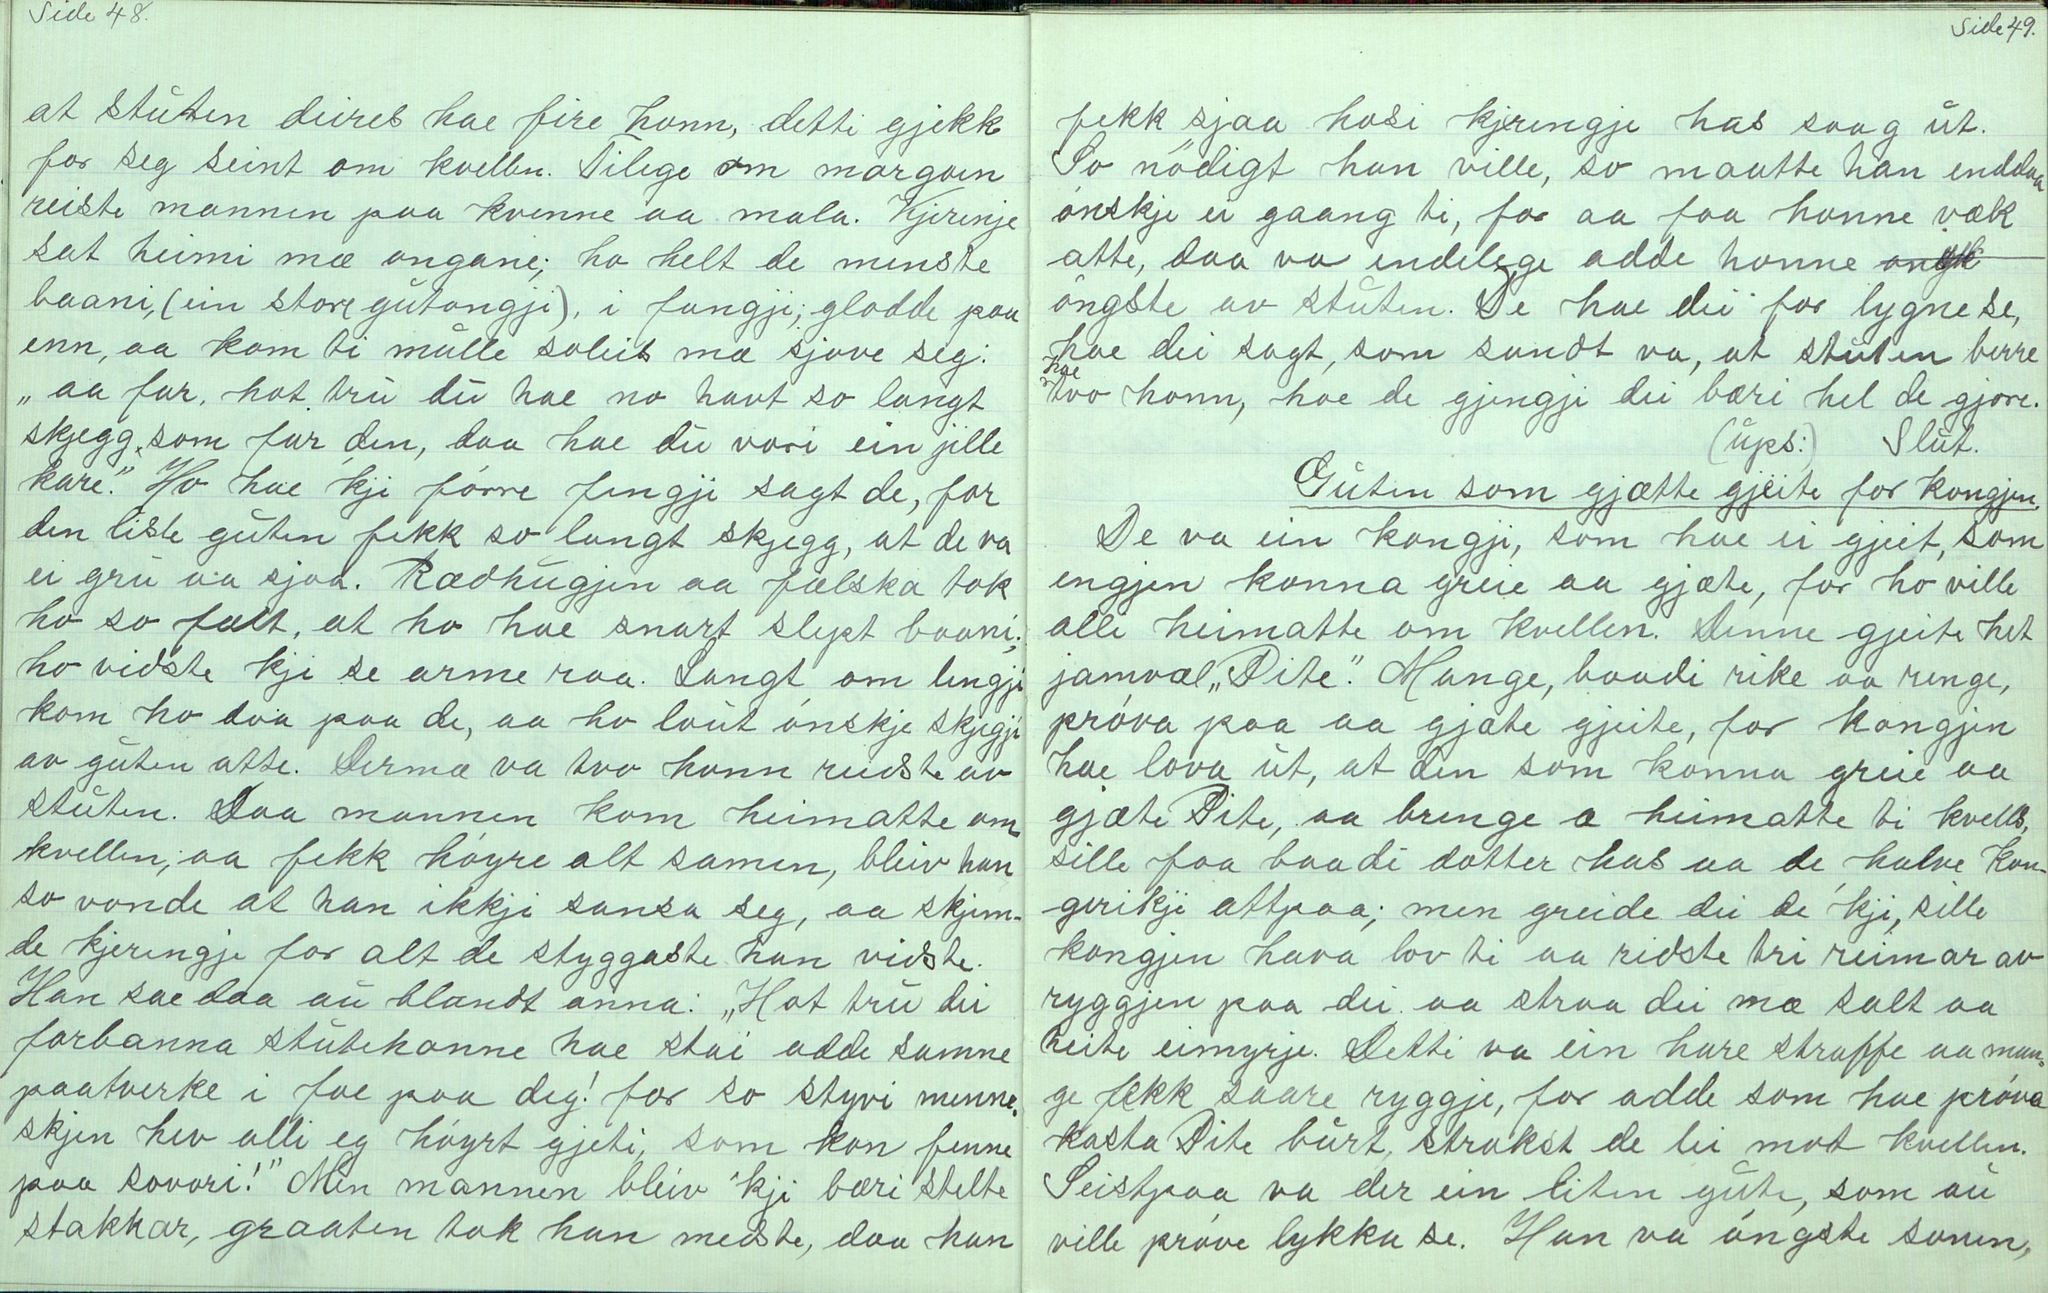 Side 48.
at stuten deires hae fire honn, detti gjekk
for seg seint om kvellen. Tilege om morgoen
reiste mannen paa kvenne aa mala. Kjerinje
sat heimi mæ ongane; ho helt de menste
baani, (ein store gutongji), i fangji; glodde paa
enn, aa kom ti mulle soleis mæ sjove seg:
"aa far, hot tru du hae no havt so langt
skjegg, som far den, daa hae du vori ein jille
kare." Ho hae 'kji fórre fengji sagt de, for
den liste guten fekk so langt skjegg, at de va
ei gru aa sjaa. Rædhugjen aa fælska tok
ho so fælt, at ho hae snart slept baani;
ho vidste kji se arme raa. Langt om lengji
kom ho daa paa de, aa ho lout ónskje skjegji
av guten atte. Dermæ va tvo honn reiste av
stuten. Daa mannen kom heimatte om
kvellen, aa fekk hóyre alt samen, bleiv han
so vonde at han ikkji sansa seg, aa skjem-
de kjeringje for alt de styggaste han vidste.
Han sae daa au blandt anna: "Hot tru dei
forbanna stutehonne hae stai adde samne
paatverke i foe paa deg! for so styvi menne-
skjen hev alli eg hóyrt gjeti, som kan fenne
paa sovori!" Men mannen bleiv 'kji bæri stelte
stakkar, graaten tok han medste, daa han
Side 49.
fekk sjaa hosi kjeringje has saag út.
So nódigt han ville, so maatte han enddaa
ónskje ei gaang ti, for aa faa honne væk
atte, daa va endelege adde honne
óngste av stuten. De hae dei for lygne se,
hae dei sagt, som sandt va, at stuten berre
hae
tvo honn, hae de gjengji dei bæri hel de gjore.
(úps:) Slut.
Guten som gjætte gjeite for kongjen.
De va ein kongji, som hae ei gjeit, som
engjen konna greie aa gjæte, for ho ville
alli heimatte om kvellen. Denne gjeite het
jamvæl "Pite". Mange, baadi rike aa renge,
próva paa aa gjæte gjeite, for kongjen
hae lova út, at den som konna greie aa
gjæte Pite, aa brenge æ heimatte ti kvells,
sille faa baadi dotter has aa de halve kon-
gerikji attpaa; men greide dei de 'kji, sille
kongjen hava lov ti aa ridste tri reimar av
ryggjen paa dei aa straa dei mæ salt aa
heite eimyrje. Detti va ein hare straffe aa man-
ge fekk saare ryggje, for adde som hae próva
kasta Pite burt, strakst de lei mot kvellen.
Seistpaa va der ein liten gute, som au
ville próve lykka se. Han va óngste sonen,